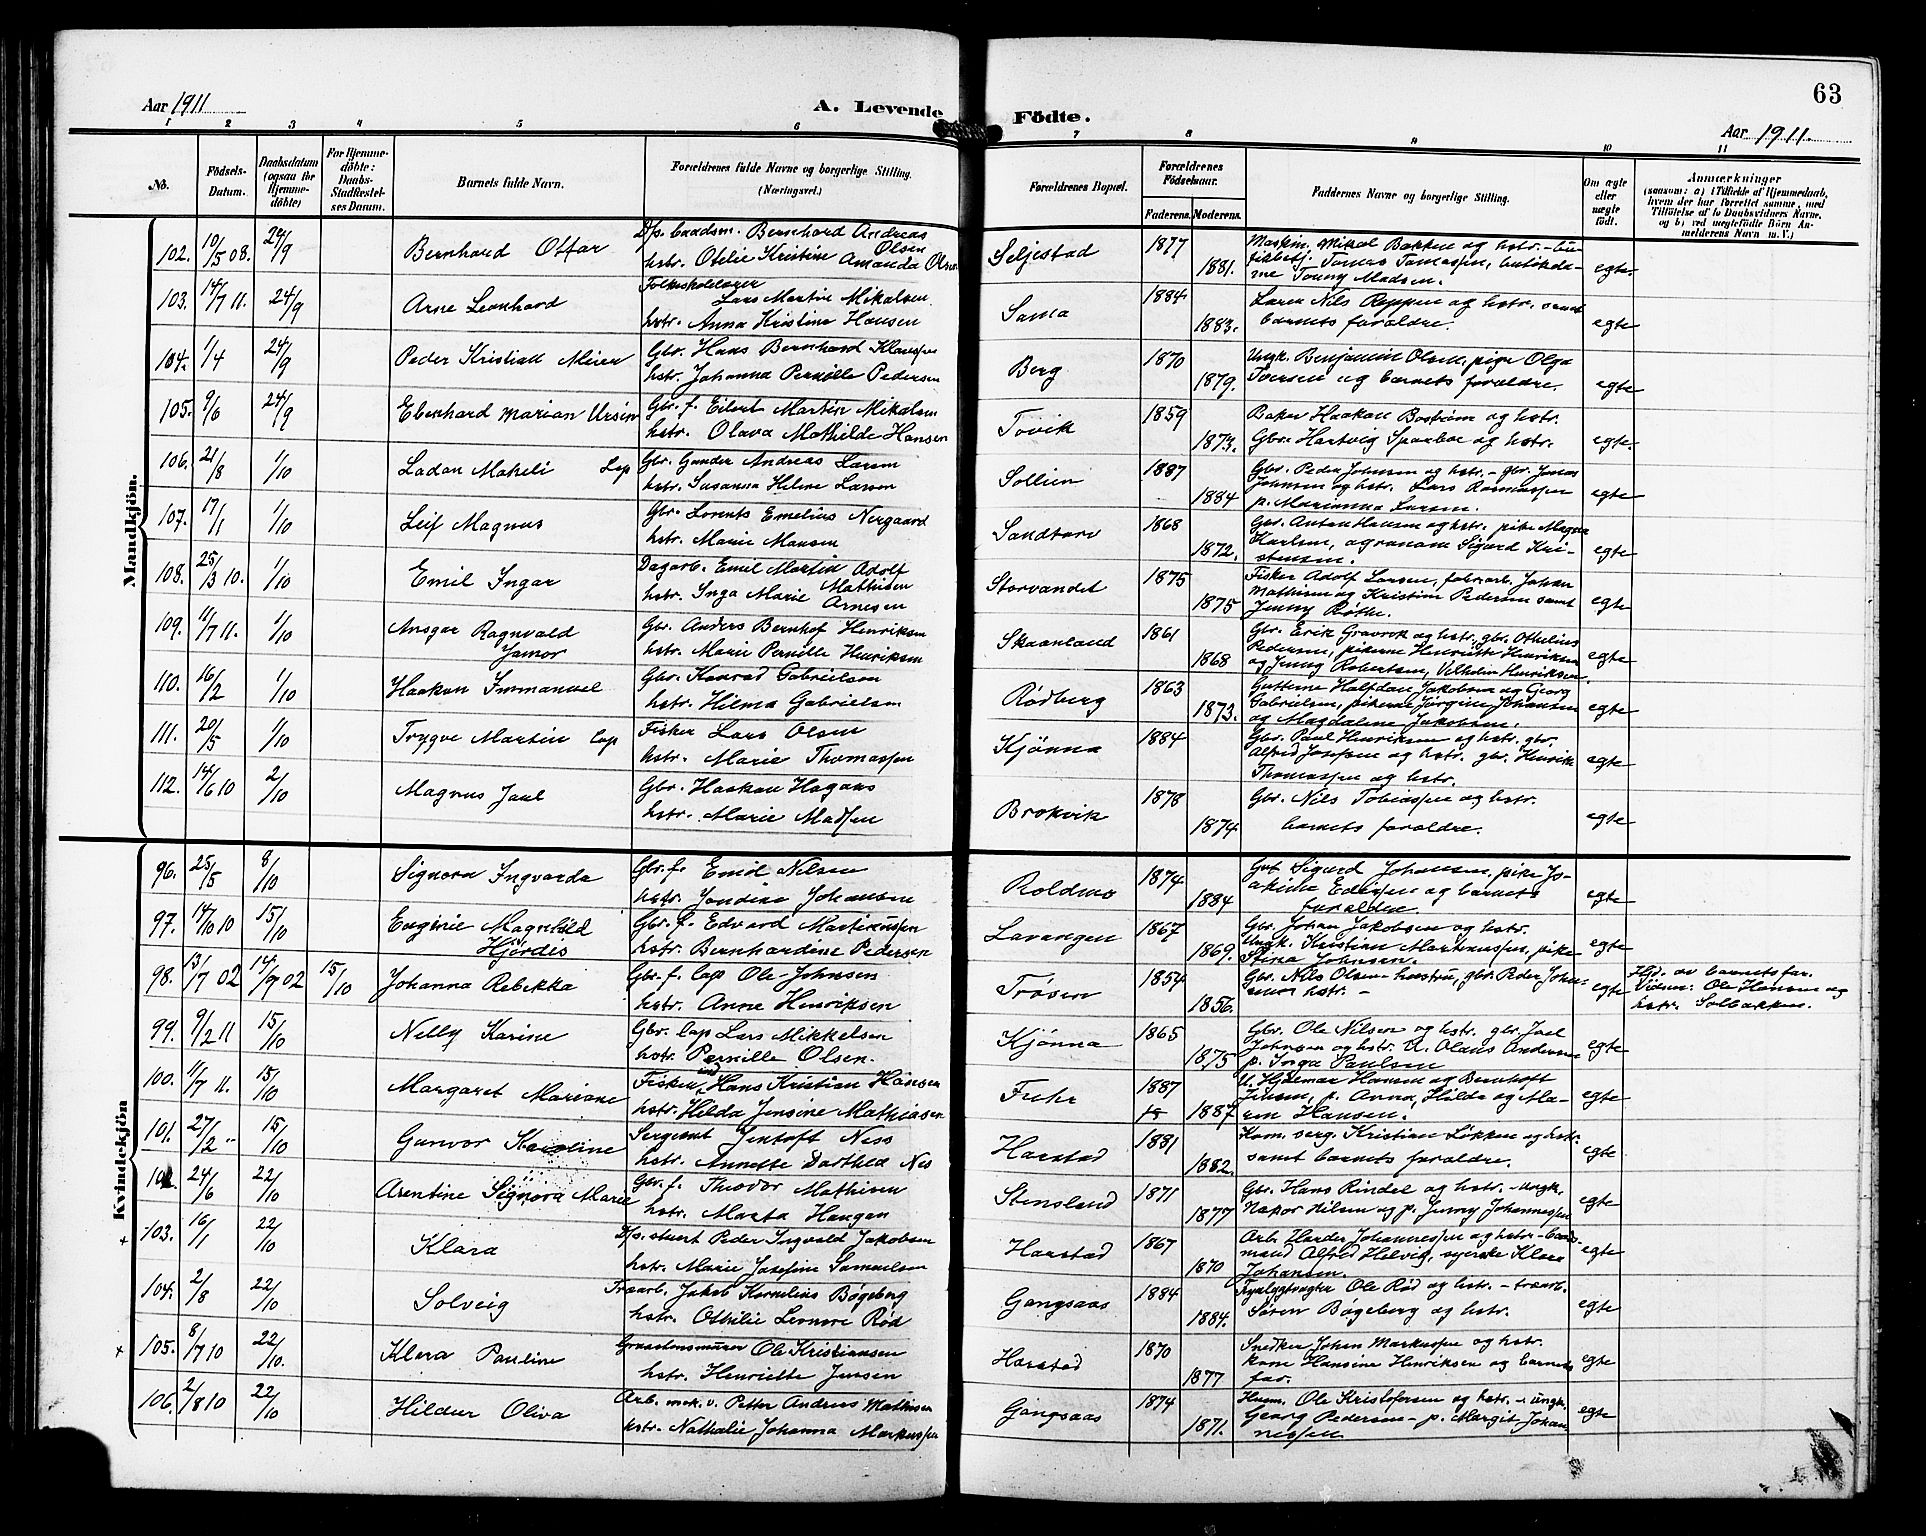 63
Aar 1911
A. Levende
Födte.
Aar 1911.
1 2 3 4 5 6 7 8 9 10 11
No.
Födsels-Datum.
Daabsdatum (ogsaa for Hjemme-döbte)
For Hjemme-döbte: Daabs-Stadfæstel-ses Datum.
Barnets fulde Navn.
Forældrenes fulde Navne og borgerlige Stilling. (Næringsvei.)
Forældrenes Bopæl.
Forældrenes Födselsaar.
Faderens. Moderens.
Faddernes Navne og borgerlige Stilling.
Om ægte eller uægte födt.
Anmærkninger
(saasom: a) i Tilfælde af Hjemmedaab, hvem der har forrettet samme, med Tilföielse af to Daabsvidners Navne, og b) ved uægtefödte Börn An-melderens Navn m. V.)
Mandkjön.
102. 10/5 08. 24/9 Bernhard Ottar
D/s. baadsm. Bernhard Andreas Olsen
hstr. Otelie Kristine Amanda Olsen
Seljestad 1877 1881.
Maskin. Mikal Bakken og hstr. - bu-
tikbetj. Tomas Tomassen, butikda-
me Tonny Madsen.
egte.
103. 14/7 11. 24/9 Arne Leonhard
Folkeskolelærer Lars Martin Mikalsen
hstr. Anna Kristine Hansen
Sama 1884 1883.
Lærer Nils Roppen og hstr. samt
barnets forældre.
egte
104. 1/4 24/9 Peder Kristian Meier
Gbr. Hans Bernhard Klaussen
hstr. Johanna Pernille Pedersen
Berg 1870 1879.
Ungk. Benjamin Olsen, pige Olga
Iversen og barnets forældre.
egte
105. 9/6 24/9 Ebenhard Marian Ursin
Gbr. f. Eilert Martin Mikalsen
hstr. Olava Mathilde Hansen
Tovik 1859 1873.
Baker Haakon Bostrøm og hstr.
Gbr. Hartvig Sparboe og hstr.
egte.
106. 21/8 1/10 Ladan Makeli Lap
Gbr. Gunder Andreas Larsen
hstr. Susanna Helene Larsen
Sollien 1887 1884
Gbr. Peder Johnsen og hstr. - gbr. Jonas
Johnsen og hstr. Lars Rasmussen
p. Marianna Larsen.
egte
107. 17/1 1/10 Leif Magnus
Gbr. Lorents Emelius Nergaard
hstr. Marie Hansen
Sandtorv 1868 1872.
Gbr. Anton Hansen og hstr. pike Magna
Karlsen, agronom Sigurd Kri-
stensen.
egte
108. 25/3 10. 1/10 Emil Ingar
Dagarb. Emil Martin Adolf Mathisen
hstr. Inga Marie Arnesen
Storvandet 1875 1875
Fisker Adolf Larsen, fabr.arb. Johan
Mathisen og Kristine Pedersen samt
Jenny Røthe.
egte
109. 11/7 11. 1/10 Ansgar Ragnvald Jamor
Gbr. Anders Bernhof Henriksen
hstr. Marie Pernille Henriksen
Skaanland 1861 1868
Gbr. Erik Gravrok og hstr., gbr. Othelius
Pedersen, pikerne Henriette Henriksen
og Jenny Robertsen, Vilhelm Henriksen.
egte
110. 16/2 1/10 Haakon Immanuel
Gbr. Konrad Gabrielsen
hstr. Hilma Gabrielsen
Rødberg 1863 1873.
Gutterne Halfdan Jakobsen og Georg
Gabrielsen, pikerne Jørgine Johansen
og Magdalene Jakobsen.
egte
111. 20/5 1/10 Trygve Martin Lap
Fisker Lars Olsen
hstr. Marie Thomassen
Kjønna 1884
Gbr. Paul Henriksen og hstr. gbr.
Alfred Josefsen og hstr. gbr. Henrik
Thomassen og hstr.
egte
112. 14/6 10 2/10 Magnus Jael
Gbr. Haakon Hagaas
hstr. Marie Madsen
Brokvik 1878 1874
Gbr. Nils Tobiassen og hstr.
barnets forældre.
egte
Kvindekjön
96. 25/5 8/10 Signora Ingvarda
Gbr. f. Emil Nilsen
hstr. Jondine Johansen
Roldmo 1874 1884
Gut Sigurd Johansen, pike Jo-
akime Edissen og barnets
forældre.
egte
97. 14/10 10 15/10 Enginie Magnhild Hjördis
Gbr. f. Edvard Martinussen
hstr. Bernhardine Pedersen
Lavangen 1867 1869.
Gbr. Johan Jakobsen og hstr.
Ungk. Kristian Martinussen, pike
Stina Johnsen.
egte
98. 13/7 02 14/9 02 15/10 Johanna Rebekka
Gbr. f. Lap Ole Johnsen
hstr. Anne Henriksen
Trøsen 1854 1856.
Gbr. Nils Olsen hustru, gbr. Peder John-
sen og hstr. -
egte
Hjd. av barnets far.
Vidner: Ole Hansen og
hstr. Solbakken.
99. 9/2 11 15/10 Nelly Karine
Gbr. Lap Lars Mikkelsen
hstr. Pernille Olsen.
Kjønna 1865 1875
Gbr. Ole Nilsen og hstr. gbr. Jael
Johnsen og hstr. U. Olaus Andersen
p. Inga Paulsen
egte
100. 11/7 11. 15/10 Margaret Mariane
Fisker, ind. Hans Kristian Hansen
hstr. Hilda Jensine Mathiasen
Fuhr 1887 1887
U. Hjelmar Hansen og Bernhoft
Jensen, p. Anna, Hilda og Ma-
ren Hansen.
egte
101. 27/2 " 15/10 Gunvor Karoline
Sergeant Jentoft Ness
hstr. Annette Dorthea Nes
Harstad 1881 1882.
Kom. serg. Kristian Løkken og hstr.
samt barnets forældre.
egte
102. 24/6 22/10 Arentine Signora Marie
Gbr. f. Theodor Mathisen
hstr. Marta Haugan
Stensland 1871 1877
Gbr. Hans Rindel og hstr. - ungk.
Nakor Nilsen og p. Jenny Johannessen
egte
+ 103. 16/1 22/10 Klara
D/s. stuert Peder Ingvald Jakobsen
hstr. Marie Josefine Samuelsen
Harstad 1867 1870
Arb. Harder Johannessen og hstr. - baads-
mand Alfred Helvig, syerske Klara
Johansen.
egte
104. 2/8 22/10 Solveig
Træarb. Jakob Kornelius Bøgeberg
hstr. Othilie Leonore Rød
Gangsaas 1884 1884.
Fyrlygtvogter Ole Rød og hstr. - træarb.
Søren Bøgeberg og hstr.
egte
+ 105. 8/7 10 22/10. Klara Pauline
Graastensmurer Ole Kristiansen
hstr. Henriette Jensen
Harstad 1870 1877
Snedker Johan Markussen og hstr.
kone Hansine Henriksen og barnets
far.
egte
106. 2/8 10 22/10 Hildur Oliva
Arb. mek. v. Petter Andreas Mathisen
hstr. Nathalie Johanna Markussen
Gangsaas 1874 1871.
Husm. Ole Kristofersen og hstr. - ungk.
Georg Pedersen - p. Margit Johan
nessen
egte